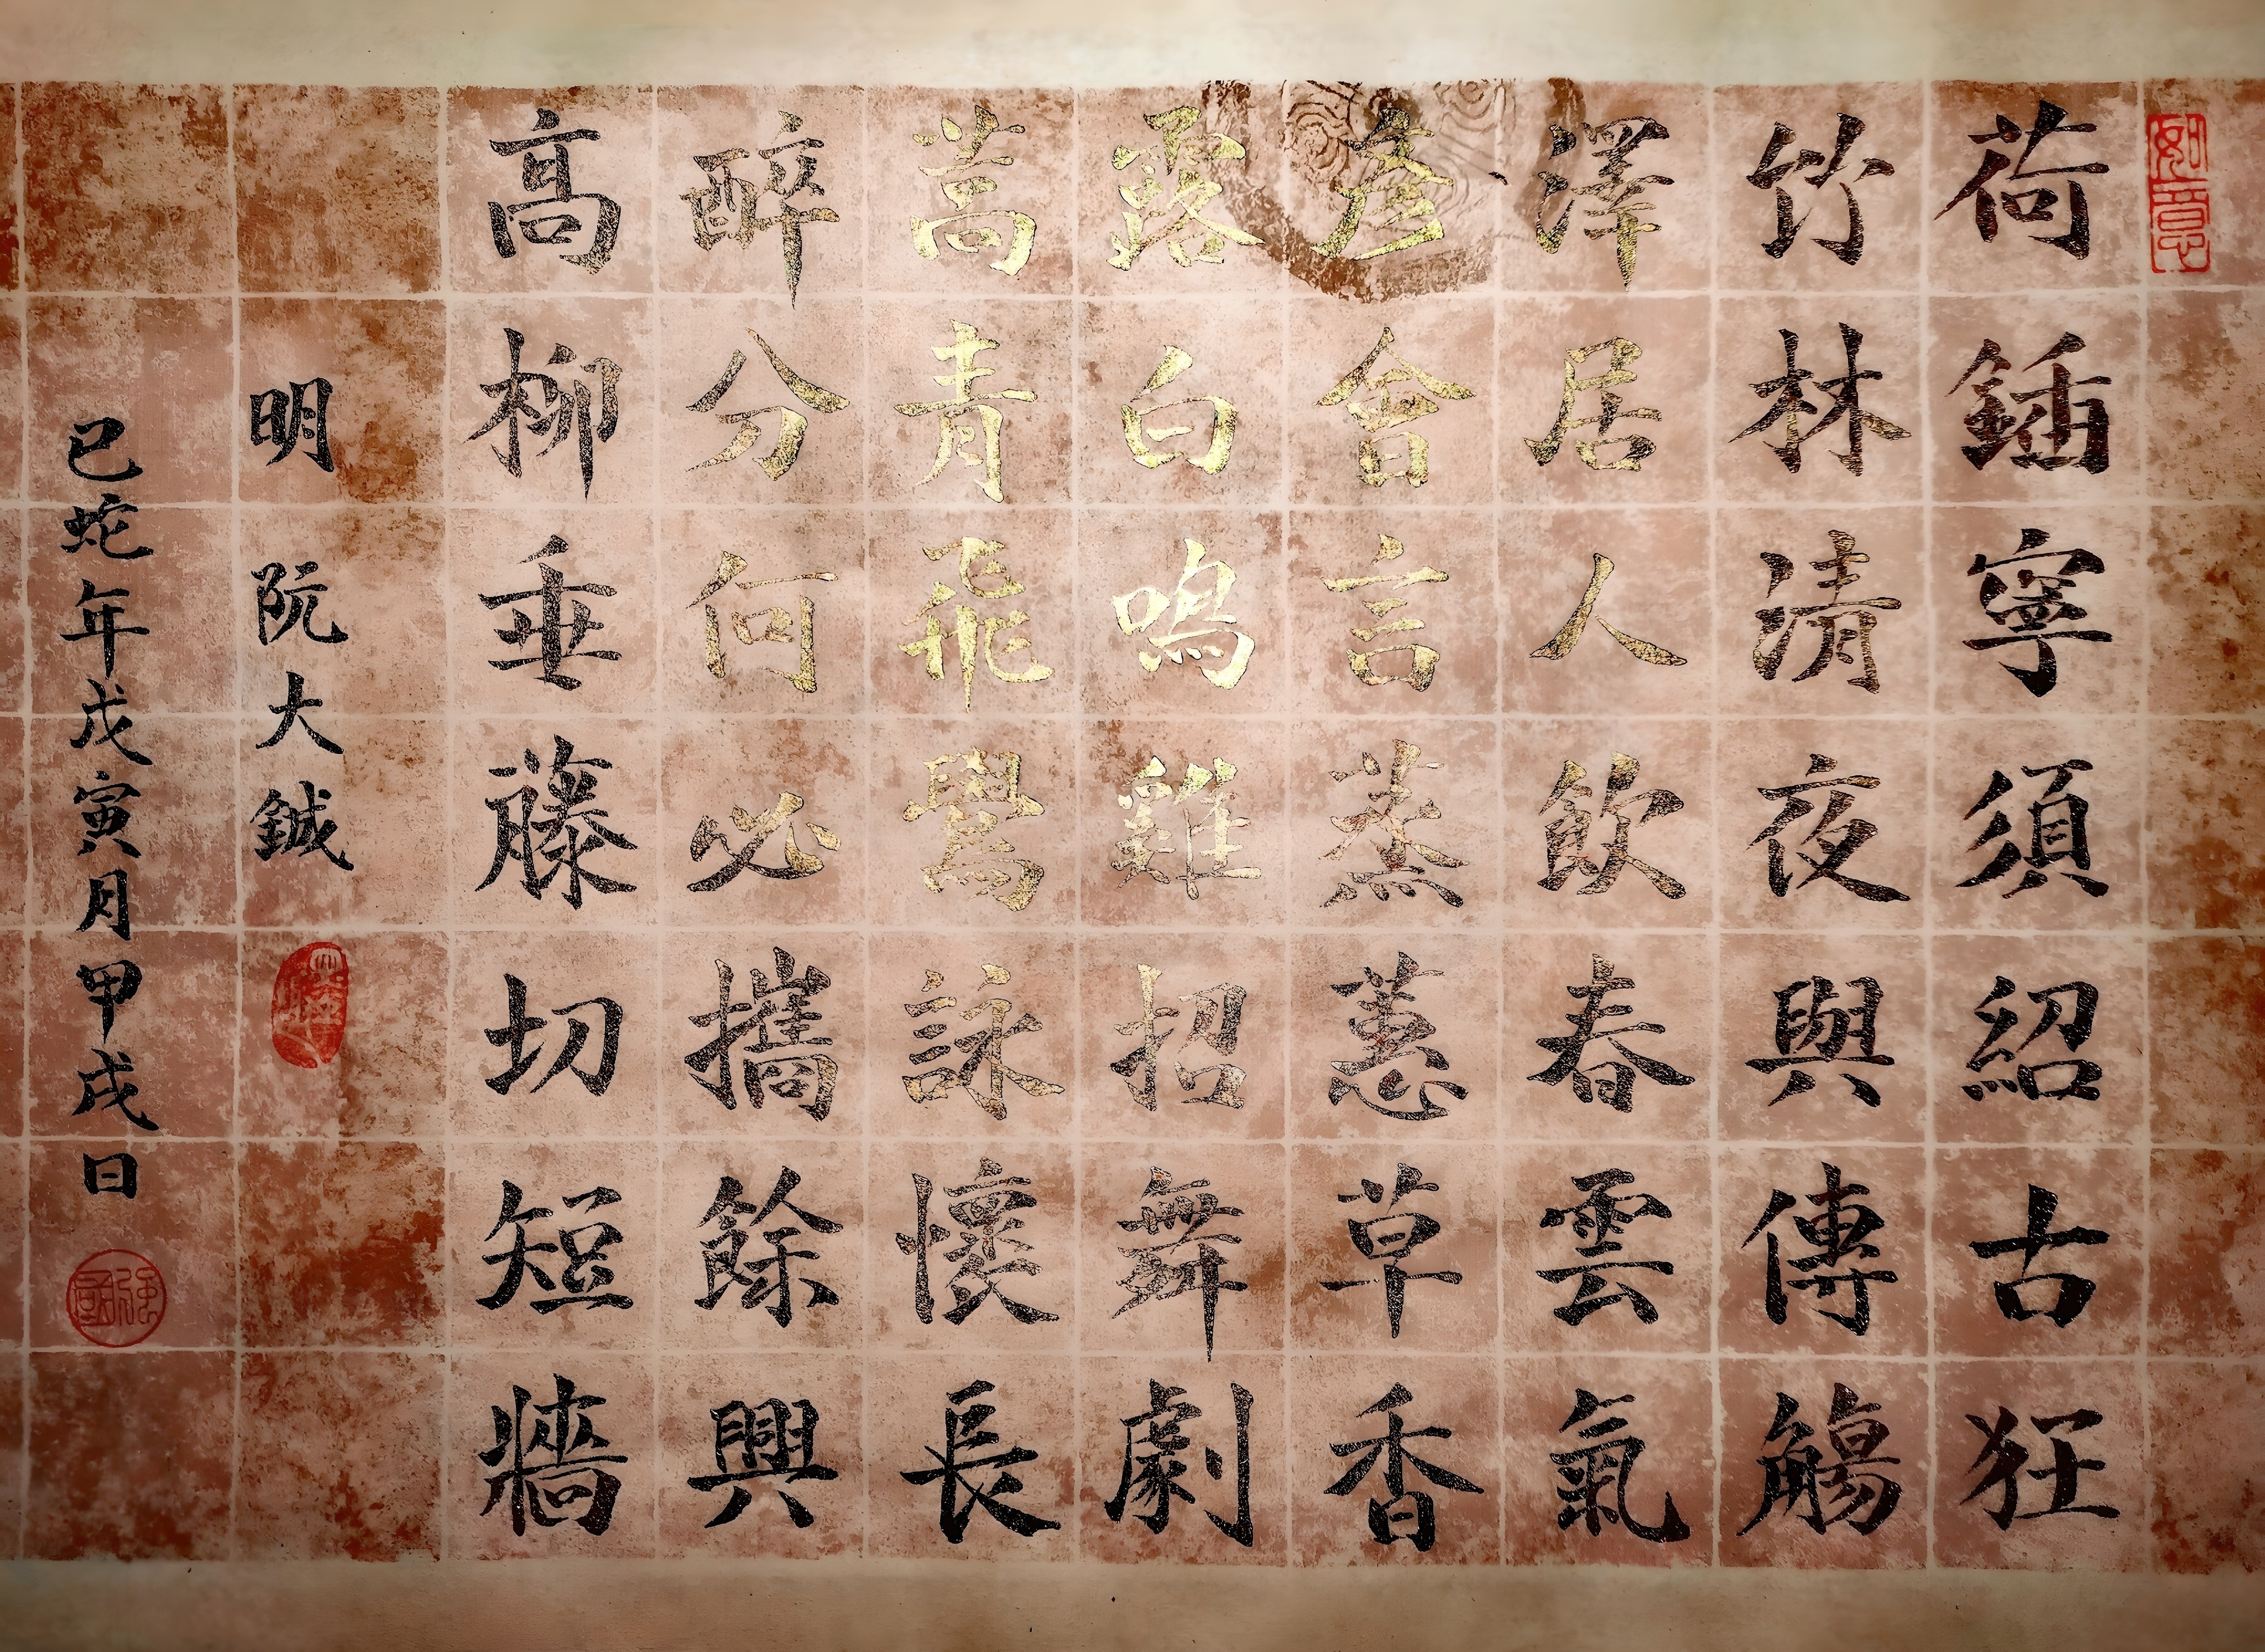 如意
荷鍤寧須紹古狂
竹林清夜與傳觴
澤居人飲春雲氣
彥會言蒸蕙草香
露白鳴雞招舞劇
蒿青飛鷽詠懷長
醉分何必攜餘興
高柳垂藤切短牆
明 阮大鋮
巳蛇年戊寅月甲戌日